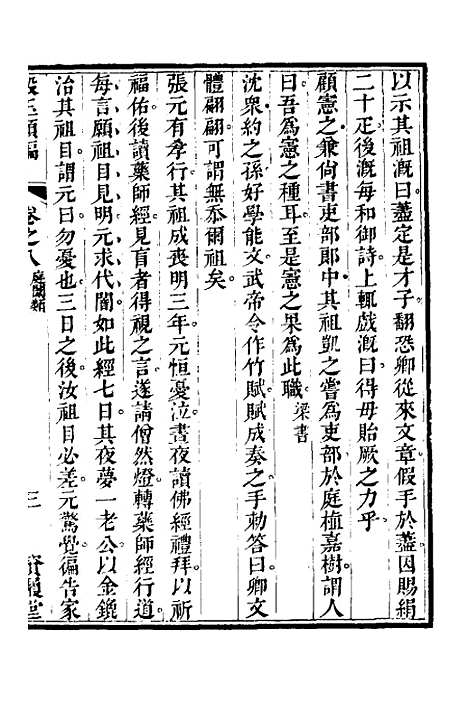 以示其祖溉曰藎定是才子翻恐卿從來文章假手於藎因賜絹
二十疋後溉每和御詩上輒戲溉曰得毋貽厥之力乎
顧憲之兼尙書吏部郎中其祖凱之嘗爲吏部於庭植嘉樹謂人
曰吾爲憲之種耳至是憲之果爲此職梁書
沈衆約之孫好學能文武帝令作竹賦賦成奏之手勑答曰卿文
體翩翩可謂無忝爾祖矣
張元有孝行其祖成喪明三年元恒憂泣晝夜讀佛經禮拜以祈
福佑後讀藥師經見盲者得視之言遂請僧然燈轉藥師經行道
每言願祖目見明元求代闇如此經七日其夜夢一老公以金鎞
治其祖目謂元曰勿憂也三日之後汝祖目必差元驚覺徧告家
卷之八 庭闈類 三